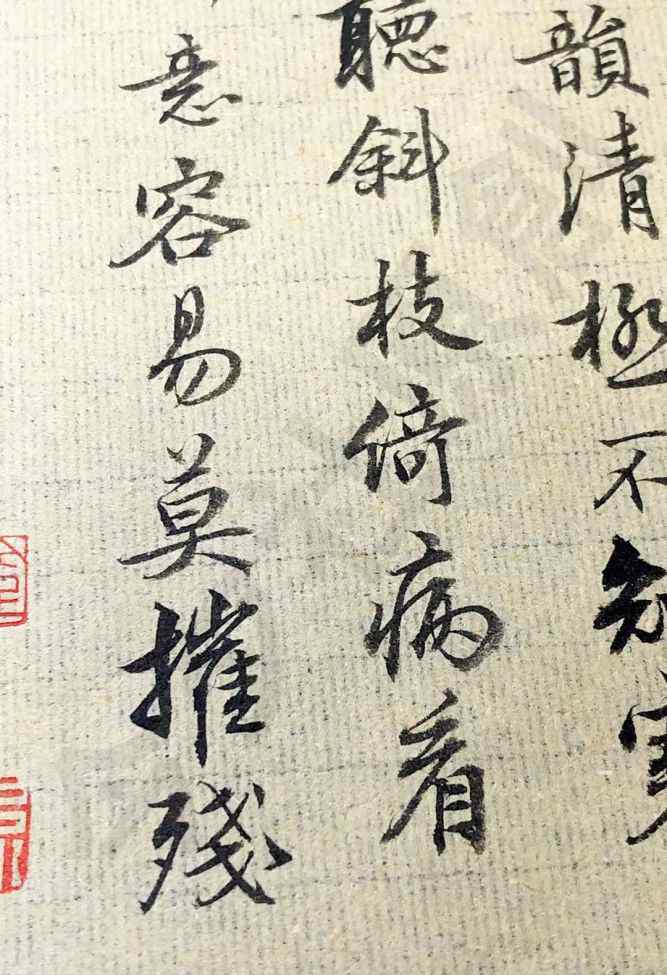 韻清極不知寒
聽斜枝倚病看
意容易莫摧殘